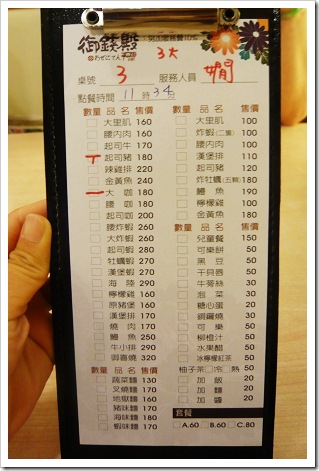 御錢殿
3大
桌號 3 服務人員 嫻
點餐時間 11 時 34 分
數量 品名 售價
大里肌 160
腰內肉 160
起司牛 170
起司豬 180
辣雞排 160
金黃魚 220
大咖 180
腰咖 180
起司咖 200
腰炸蝦 260
大炸蝦 260
起炸蝦 280
牡蠣蝦 270
漢堡蝦 270
海陸 290
檸檬雞 160
原豬堡 160
漢堡排 170
燒肉 170
鰻魚 250
牛小排 290
御喜燒 320
數量 品名 售價
蔬菜麵 130
叉燒麵 170
地獄麵 160
豬味麵 170
海味麵 180
蝦味麵 170
數量 品名 售價
大里肌 100
炸蝦(二隻) 100
腰內肉 100
漢堡排 110
起司豬 120
炸牡蠣(五顆) 180
鰻魚 190
檸檬雞 100
金黃魚 180
數量 品名 售價
兒童餐 150
可樂餅 50
黑豆 50
干貝唇 50
牛蒡絲 30
泡菜 30
糖心蛋 20
銅鑼燒 30
可樂 30
柳橙汁 30
水果醋 50
冰檸檬紅茶 50
柚子茶 冷 熱 50
加飯 20
加麵 20
加醬 20
套餐
A.60 B.60 C.80